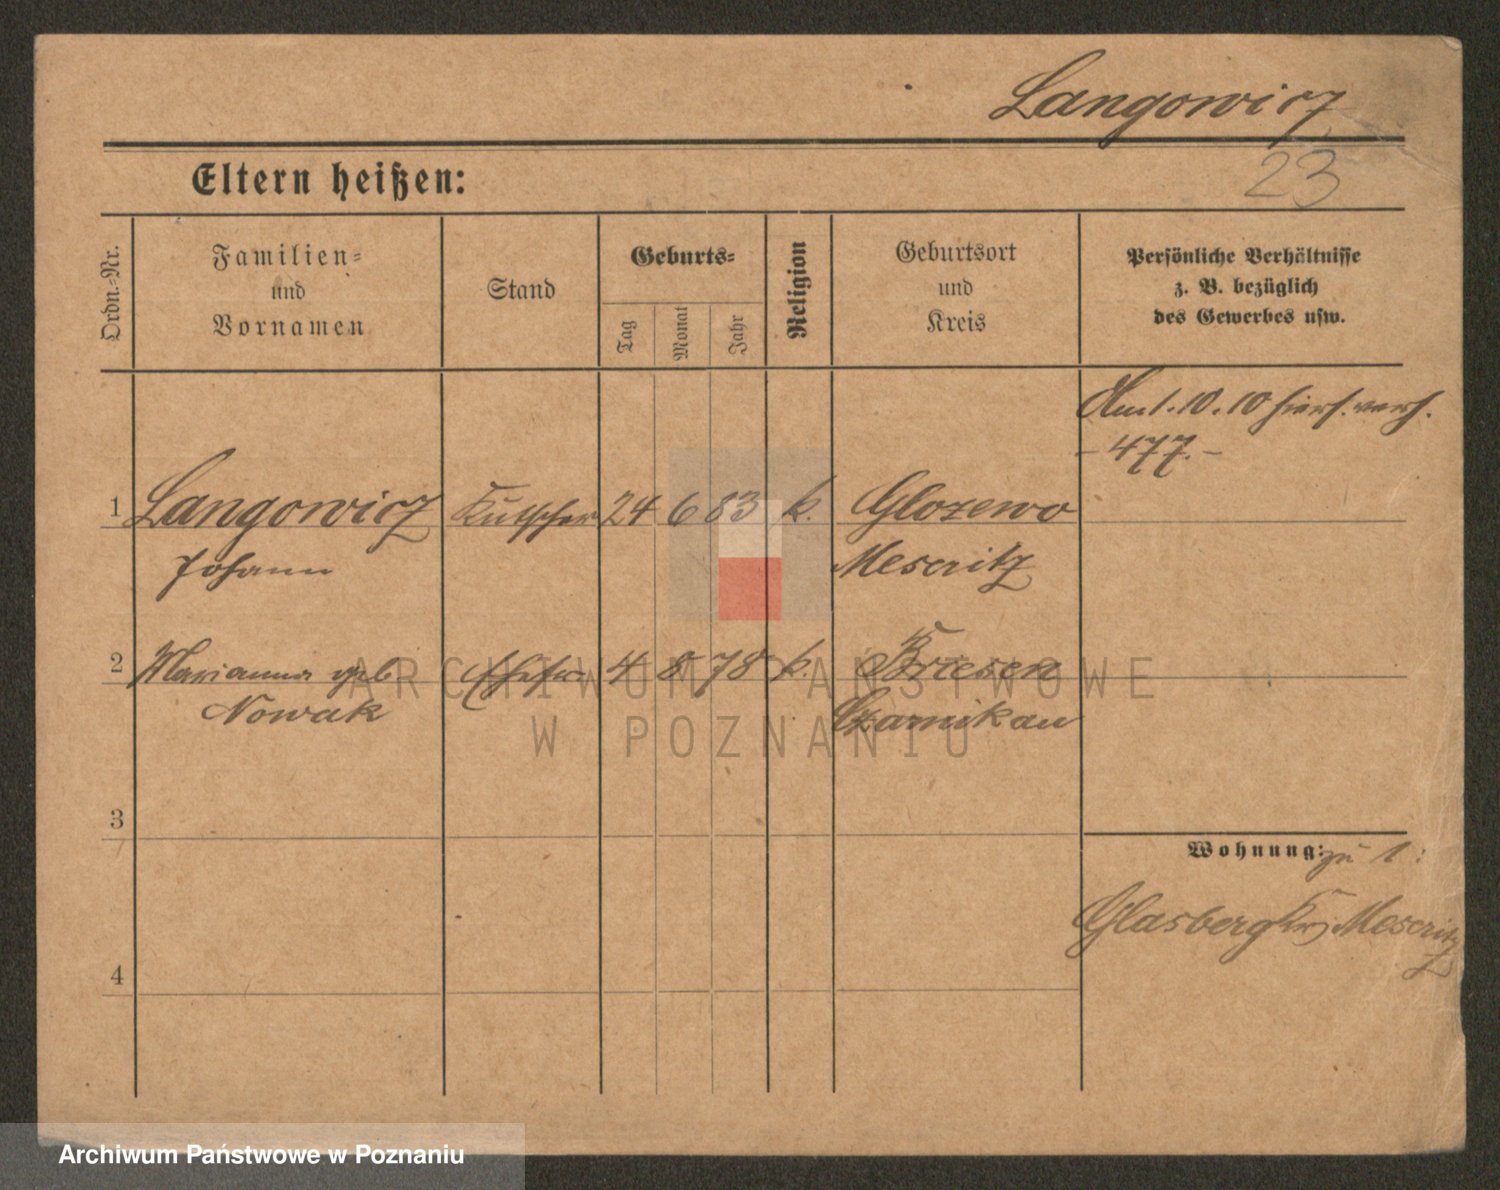 Langowicz
23
Eltern heißen:
Ordn.-Nr.
Familien-
und
Vornamen
Stand
Geburts-
Tag
Monat
Jahr
Religion
Geburtsort
und
Kreis
Persönliche Verhältnisse
z. B. bezüglich
des Gewerbes usw.
Am 1.10.10 hiers. verh.
- 477. -
1 Langowicz Kutscher 24 6 83 k. Glozewo
Johann Meseritz
2 Marianna geb Ehefr. 4 8 78 k. Briesen
Nowak Czarnikau
3
Wohnung: zu 1:
Glasberg Kr. Meseritz
4
ARCHIWUM PAŃSTWOWE
W POZNANIU
Archiwum Państwowe w Poznaniu